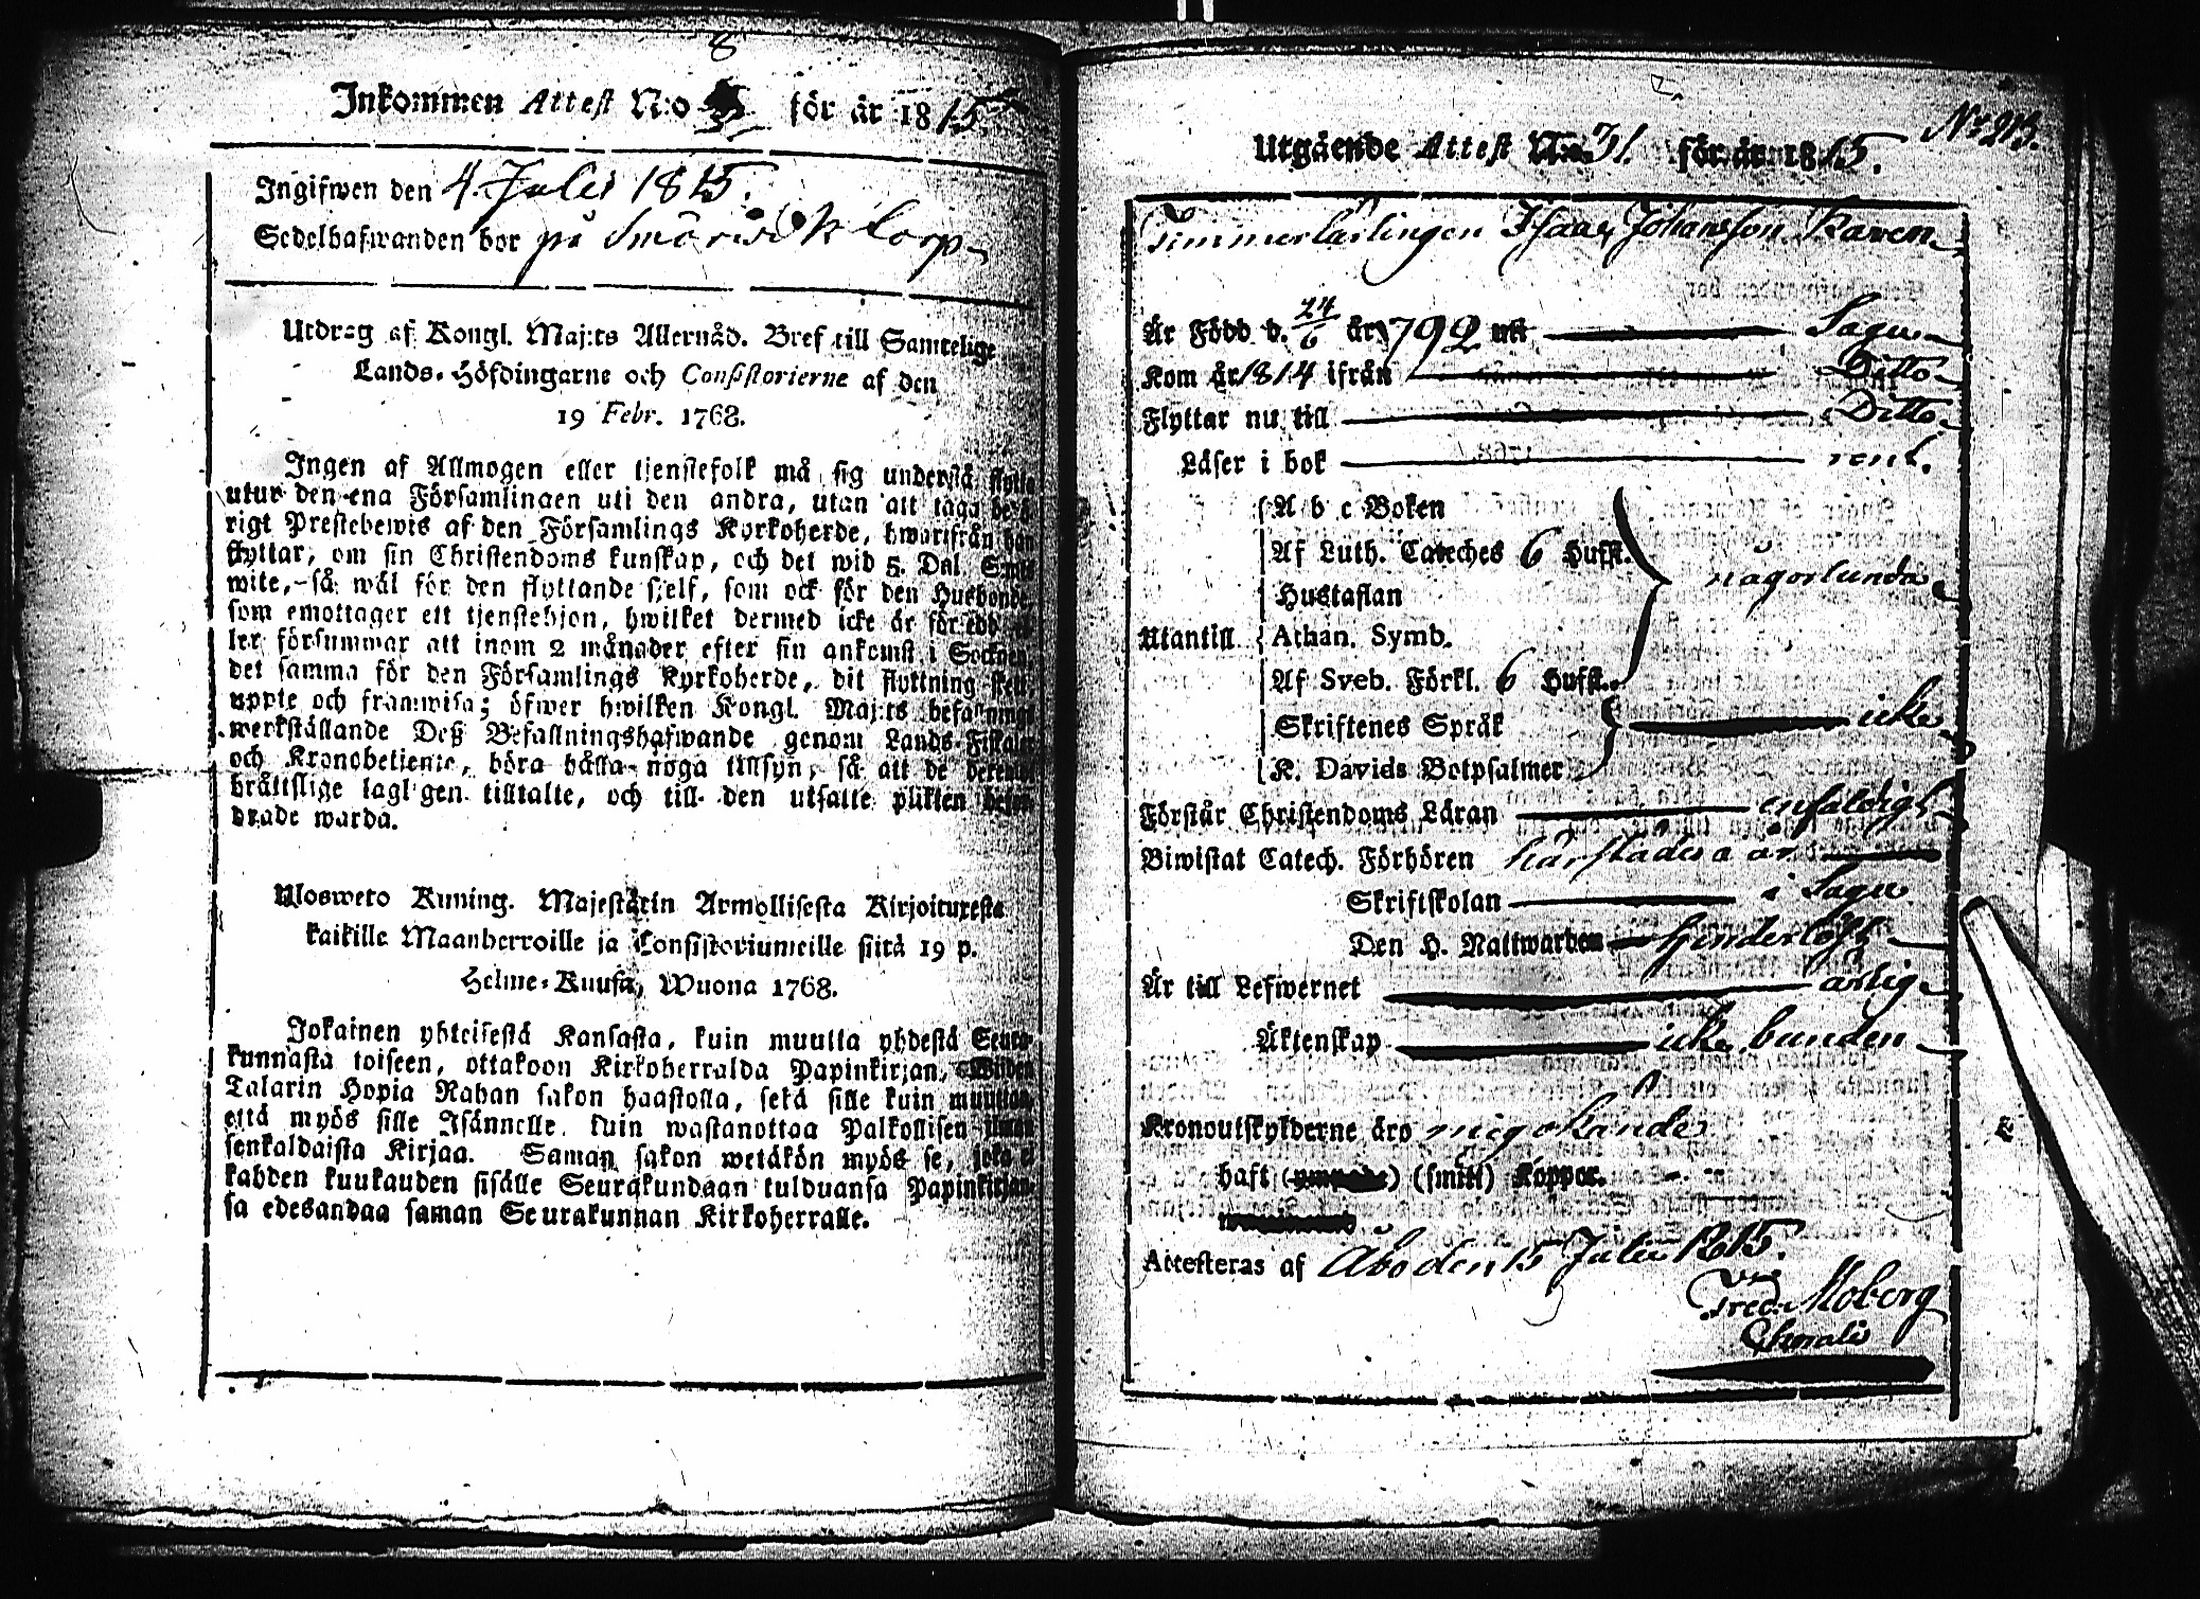 8
Inkommen Attest N:o för år 1815.
Ingifwen den 4 Julii 1815.
Sedelhafwanden bor på Småviek torp
Utdrag af Kongl. Maj:ts Allernåd. Bref till Samtelige
Lands-Höfdingarne och Consistorierne af den
19 Febr. 1768.
Ingen af Allmogen eller tjenstefolk må sig understå flytta
utur den ena Församlingen uti den andra, utan att taga behö-
rigt Prestebewis af den Församlings Kyrkoherde, hwarifrån han
flyttar, om sin Christendoms kunskap, och det wid 5. Dal. S:mts
wite, så wäl för den flyttande sjelf, som ock för den Husbonde,
som emottager ett tjenstehjon, hwilket dermed icke är försedd el-
ler försummar att inom 2 månader efter sin ankomst i Socknen,
det samma för den Församlings Kyrkoherde, dit flyttning skett,
uppte och framwisa; öfwer hwilken Kongl. Maj:ts befallnings
werkställande Deß Befallningshafwande genom Lands-Fiskaler
och Kronobetjente, böra hålla noga tillsyn, så att de deremot
bråttslige lagligen tilltalte, och till den utsatte plikten befor-
drade warda.
Uloswето Kuning. Majestätin Armollisesta Kirjoituxesta
kaikille Maanherroille ja Consistoriumeille siitä 19 p.
Helme-Kuusa, Wuona 1768.
Jokainen yhteisestä Kansasta, kuin muutta yhdestä Seura-
kunnasta toiseen, ottakoon Kirkoherralda Papinkirjan, Wiiden
Talarin Hopia Rahan sakon haastolla, sekä sille kuin muuttaa,
että myös sille Isännelle, kuin wastanottaa Palkollisen ilman
senkaldaista Kirjaa. Saman sakon wetäkön myös se, joka ei
kahden kuukauden sisälle Seurakundaan tulduansa Papinkirjan-
sa edesandaa saman Seurakunnan Kirkoherralle.
No 213.
Utgående Attest No. 31. för år 1815.
Timmerlärlingen Isaac Johansson Kaven
Är Född d. 24/6 år 1792 uti Sagu
Kom år 1814 ifrån Ditto
Flyttar nu till Ditto
Läser i bok rent.
A b c Boken
Af Luth. Cateches 6 Hufst.
någorlunda
Hustaflan
Utantill Athan. Symb.
Af Sveb. Förkl. 6 Hufst.
Skriftenes Språk icke
K. Davids Botpsalmer
Förstår Christendoms Läran enfaldigt
Biwistat Catech. Förhören härstädes
Skriftskolan i Sagu
Den H. Nattwarden hinderlöst
Är till Lefwernet ärlig
Äktenskap icke bunden
Kronoutskylderne äro mig okände
haft (smitt) Koppor.
Attesteras af Åbo den 15 Julii 1815.
Fred. Moberg